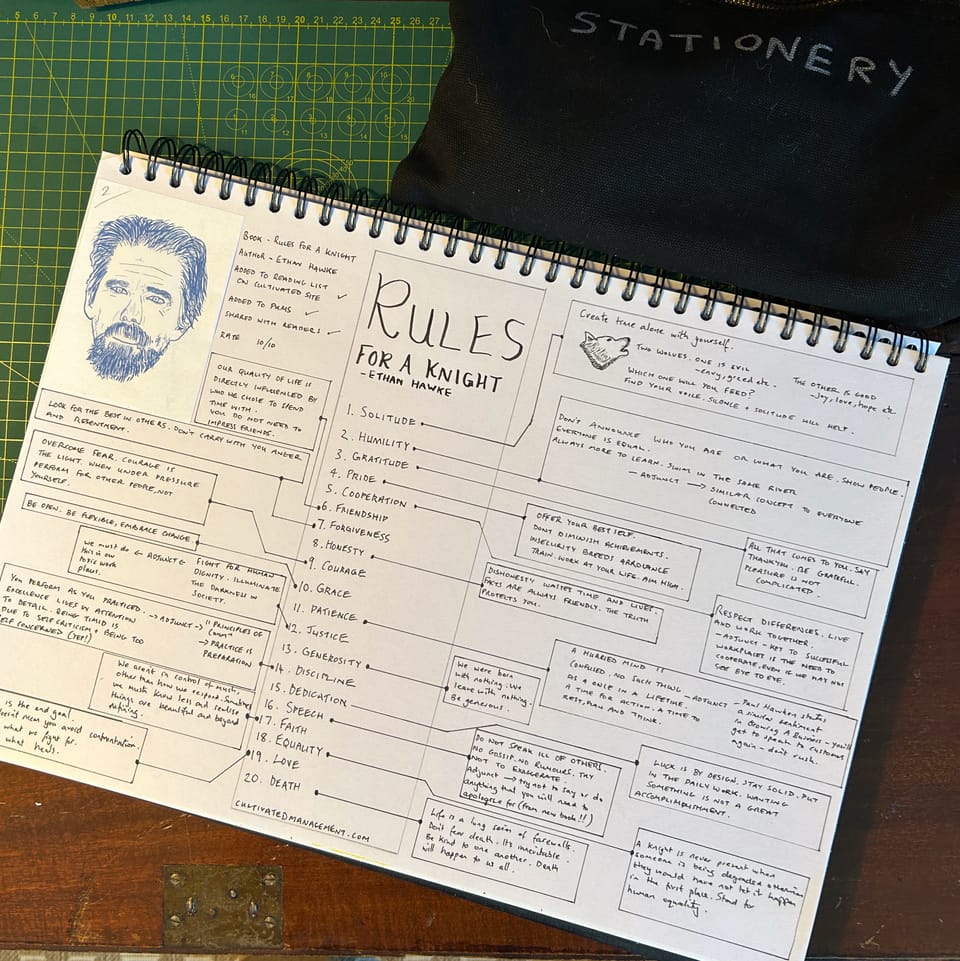 STATIONERY
5 6 7 8 9 10 11 12 13 14 15 16 17 18 19 20 21 22 23 24 25 26 27
2
BOOK - RULES FOR A KNIGHT
AUTHOR - ETHAN HAWKE
ADDED TO READING LIST
ON CULTIVATED SITE ✓
ADDED TO PKMS ✓
SHARED WITH READERS ✓
RATE 10/10
OUR QUALITY OF LIFE IS
DIRECTLY INFLUENCED BY
WHO WE CHOSE TO SPEND
TIME WITH.
YOU DO NOT NEED TO
IMPRESS FRIENDS.
LOOK FOR THE BEST IN OTHERS. DON'T CARRY WITH YOU ANGER
AND RESENTMENT.
OVERCOME FEAR. COURAGE IS
THE LIGHT. WHEN UNDER PRESSURE
PERFORM FOR OTHER PEOPLE, NOT
YOURSELF.
BE OPEN. BE FLEXIBLE, EMBRACE CHANGE.
we must do ← ADJUNCT
this in our
toxic work
places.
FIGHT FOR HUMAN
DIGNITY. ILLUMINATE
THE DARKNESS IN
SOCIETY.
YOU PERFORM AS YOU PRACTICED.
EXCELLENCE LIVES IN ATTENTION
TO DETAIL. BEING TIMID IS
DUE TO SELF CRITICISM + BEING TOO
SELF CONCERNED (YEP!)
→ ADJUNCT → "PRINCIPLES OF
→ PRACTICE IS
PREPARATION
We aren't in control of much,
other than how we respond. Sometimes
we must know less and realise
things are beautiful and beyond
defining.
is the end goal.
doesn't mean you avoid confrontation.
what we fight for.
what heals.
RULES
FOR A KNIGHT
- ETHAN HAWKE
1. SOLITUDE
2. HUMILITY
3. GRATITUDE
4. PRIDE
5. COOPERATION
6. FRIENDSHIP
7. FORGIVENESS
8. HONESTY
9. COURAGE
10. GRACE
11. PATIENCE
12. JUSTICE
13. GENEROSITY
14. DISCIPLINE
15. DEDICATION
16. SPEECH
17. FAITH
18. EQUALITY
19. LOVE
20. DEATH
CULTIVATEDMANAGEMENT.COM
Create time alone with yourself.
TWO WOLVES. ONE IS EVIL
- envy, greed etc.
THE OTHER IS GOOD
- Joy, love, hope etc
WHICH ONE WILL YOU FEED?
FIND YOUR VOICE. SILENCE + SOLITUDE WILL HELP.
DON'T ANNOUNCE WHO YOU ARE OR WHAT YOU ARE. SHOW PEOPLE.
EVERYONE IS EQUAL.
ALWAYS MORE TO LEARN. SWIM IN THE SAME RIVER
- ADJUNCT → SIMILAR CONCEPT TO EVERYONE
CONNECTED
OFFER YOUR BEST SELF.
DON'T DIMINISH ACHIEVEMENTS.
INSECURITY BREEDS ARROGANCE
TRAIN. WORK AT YOUR LIFE. AIM HIGH.
ALL THAT COMES TO YOU. SAY
THANKYOU. BE GRATEFUL.
PLEASURE IS NOT
COMPLICATED.
DISHONESTY WASTES TIME AND LIVES.
FACTS ARE ALWAYS FRIENDLY. THE TRUTH
PROTECTS YOU.
RESPECT DIFFERENCES. LIVE
AND WORK TOGETHER.
- ADJUNCT - KEY TO SUCCESSFUL
WORKPLACES IS THE NEED TO
COOPERATE, EVEN IF WE MAY NOT
SEE EYE TO EYE.
A HURRIED MIND IS
CONFUSED. NO SUCH THING
AS A ONCE IN A LIFETIME.
A TIME FOR ACTION. A TIME TO
REST, PLAN AND THINK.
- ADJUNCT - Paul Hawken states
a similar sentiment
in Growing A Business - you'll
get to speak to customers
again - don't rush.
We were born
with nothing. We
leave with nothing.
Be generous.
DO NOT SPEAK ILL OF OTHERS.
NO GOSSIP. NO RUMOURS. TRY
NOT TO EXAGGERATE.
Adjunct → try not to say or do
anything that you will need to
apologise for (from new book!!)
LUCK IS BY DESIGN. STAY SOLID. PUT
IN THE DAILY WORK. WANTING
SOMETHING IS NOT A GREAT
ACCOMPLISHMENT.
Life is a long series of farewells.
Don't fear death. It's inevitable.
Be kind to one another. Death
will happen to us all.
A Knight is never present when
someone is being degraded otherwise
they would have not let it happen
in the first place. Stand for
human equality.